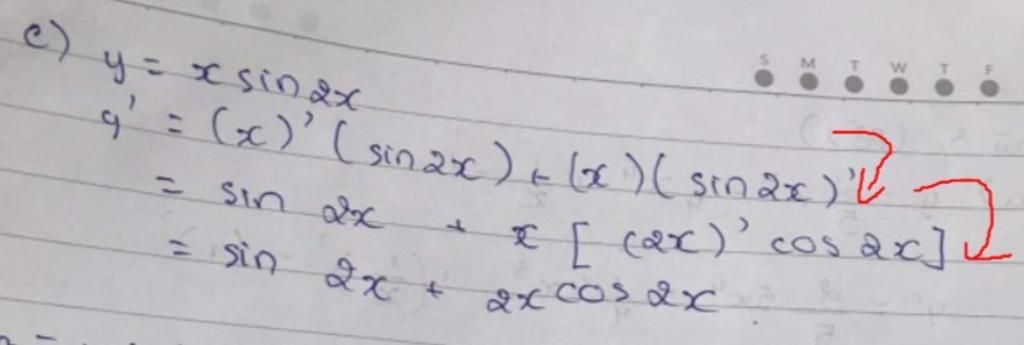 S M T W T F
c) y = x sin 2x
y' = (x)' (sin 2x) + (x) (sin 2x)'
= sin 2x + x [ (2x)' cos 2x ]
= sin 2x + 2x cos 2x